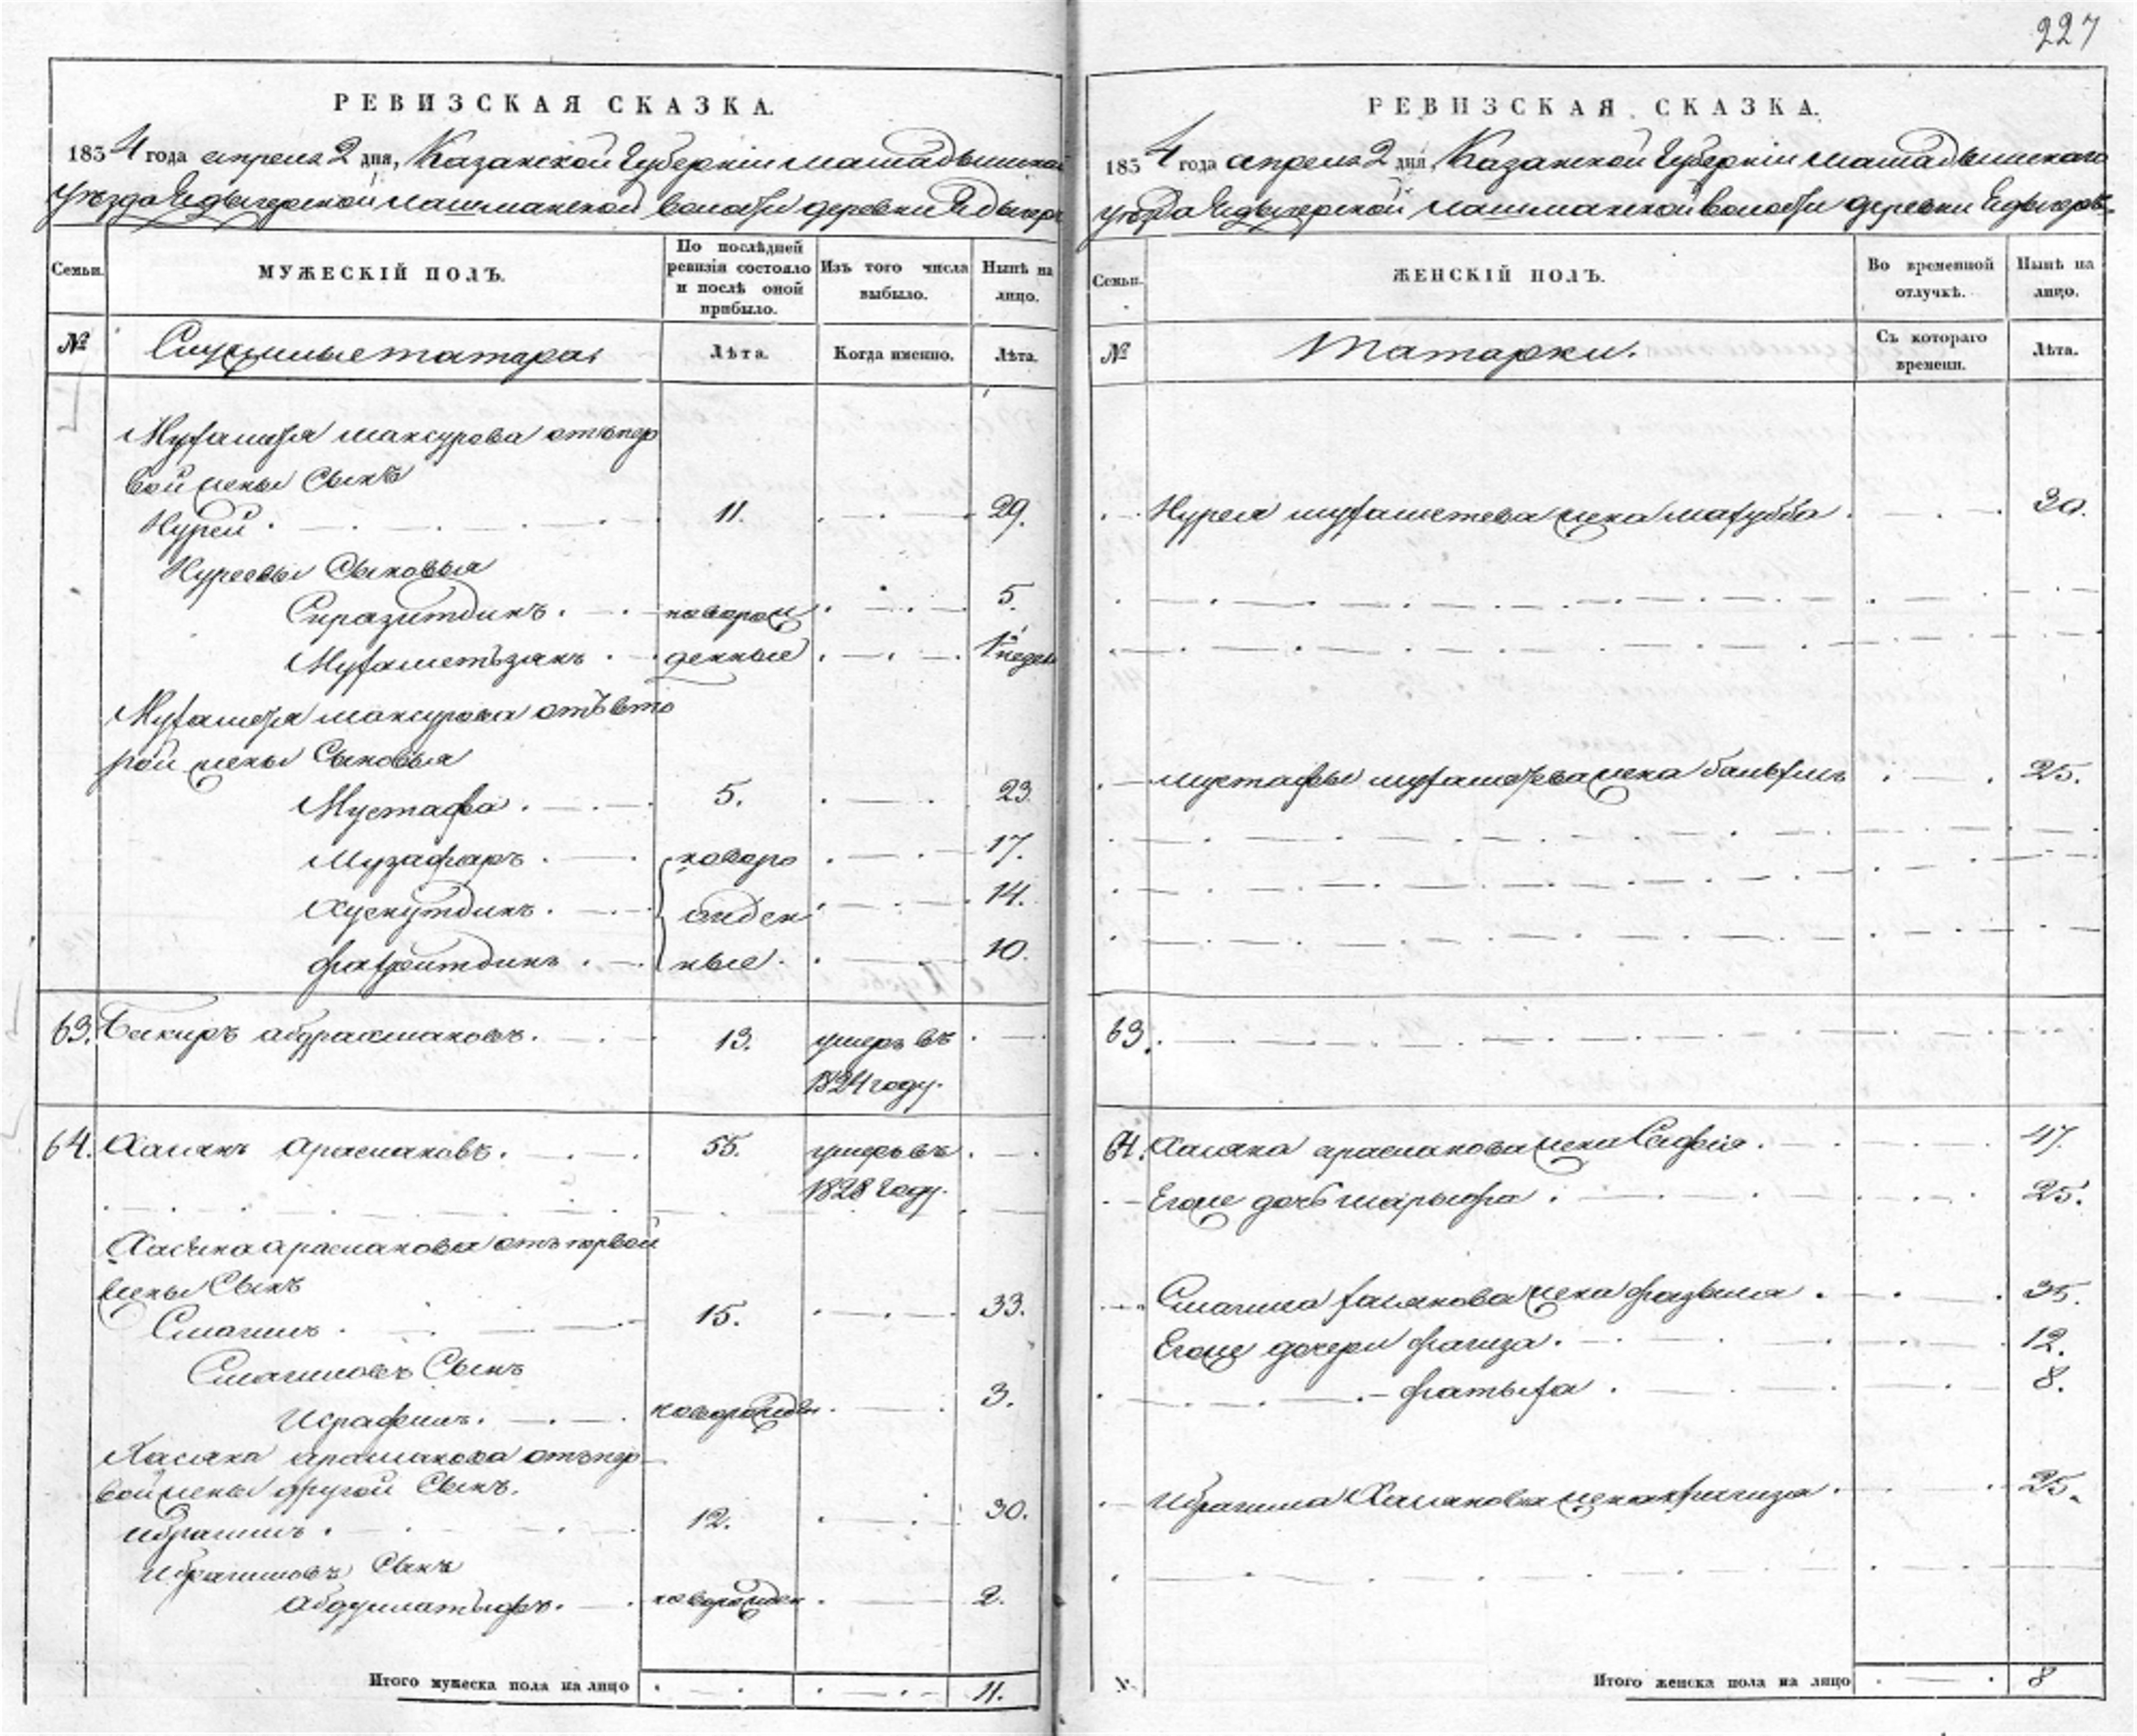 227
РЕВИЗСКАЯ СКАЗКА.
1834 года апреля 2 дня, Казанской Губернiи мамадышскаго
уезда Ядыгерской лашманской волости деревни Ядыгерь
Семьи.
МУЖЕСКІЙ ПОЛЪ.
По послѣдней ревизіи состояло и послѣ оной прибыло.
Изъ того числа выбыло.
Нынѣ на лицо.
№
Служилые татара
Лѣта.
Когда именно.
Лѣта.
Мухаметя максурова отъ пер
вой жены Сынъ
Нурей 11. 29.
Нуреевы Сыновья
Сиразитдинъ новорож 5.
Мухаметзянъ денные 1 недел
Мухаметя максурова отъ вто
рой жены Сыновья
Мустафа 5. 23.
Музафаръ новоро 17.
Хуснутдинъ жден 14.
Фахретдинъ ные 10.
63. Бикиръ абдрахмановъ 13. умеръ въ
1824 году.
64. Халякъ 55. умеръ въ
1828 году.
отъ первой
жены Сынъ
Смагилъ 15. 33.
Смагиловъ Сынъ
Исрафилъ новорожден 3.
отъ пер
вой жены другой Сынъ.
Ибрагимъ 12. 30.
Ибрагимовъ Сынъ
Абдуллатыфъ новорожден 2.
Итого мужеска пола на лицо 11.
РЕВИЗСКАЯ СКАЗКА.
1834 года апреля 2 дня, Казанской Губернiи мамадышскаго
уезда Ядыгерской лашманской волости деревни Ядыгерь
Семьи.
ЖЕНСКІЙ ПОЛЪ.
Во временной отлучкѣ.
Нынѣ на лицо.
№
Татарки.
Съ котораго времени.
Лѣта.
Нурея мухаметева жена Махубба 30.
Мустафы мухаметева жена 25.
63.
64. жена Сафия 47.
Егоже дочь Шарыфа 25.
Смагила халякова жена Фазыла 35.
Егоже дочери Фагиза 12.
Фатыха 8.
Ибрагима Халякова жена 25.
Итого женска пола на лицо 8